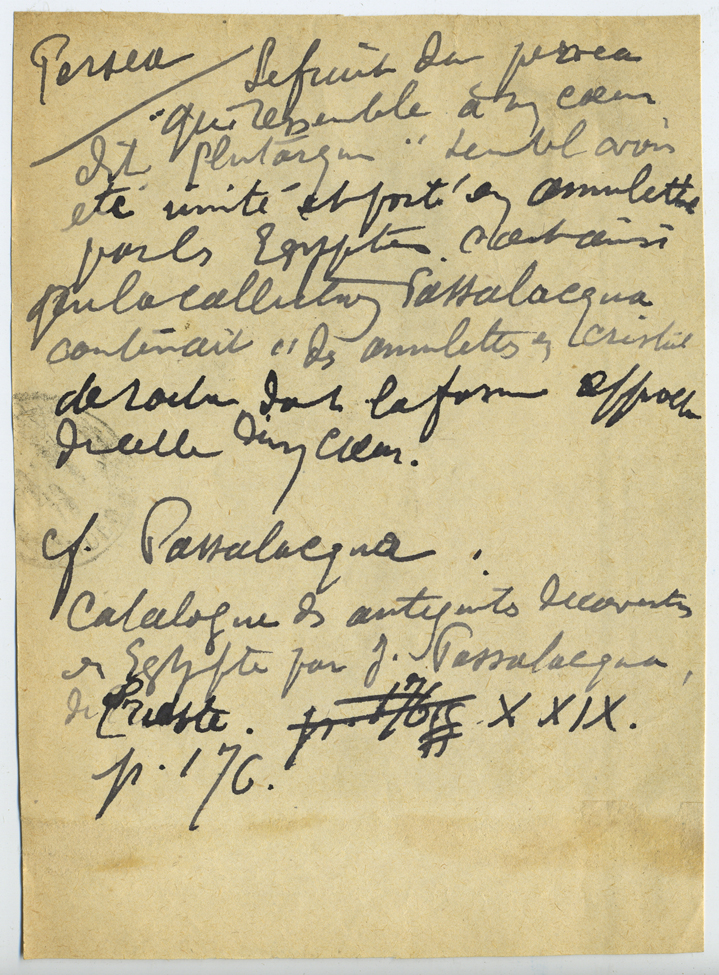 Persea Le fruit du persea
"qui ressemble à un cœur
dit Plutarque" semble avoir
été imité et porté en amulette
par les Egyptiens. C'est ainsi
que la collection Passalacqua
contenait "des amulettes en cristal
de roche dont la forme approche
de celle d'un cœur.
cf. Passalacqua.
Catalogue des antiquités découvertes
en Egypte par J. Passalacqua,
de Trieste. XXIX.
p. 176.